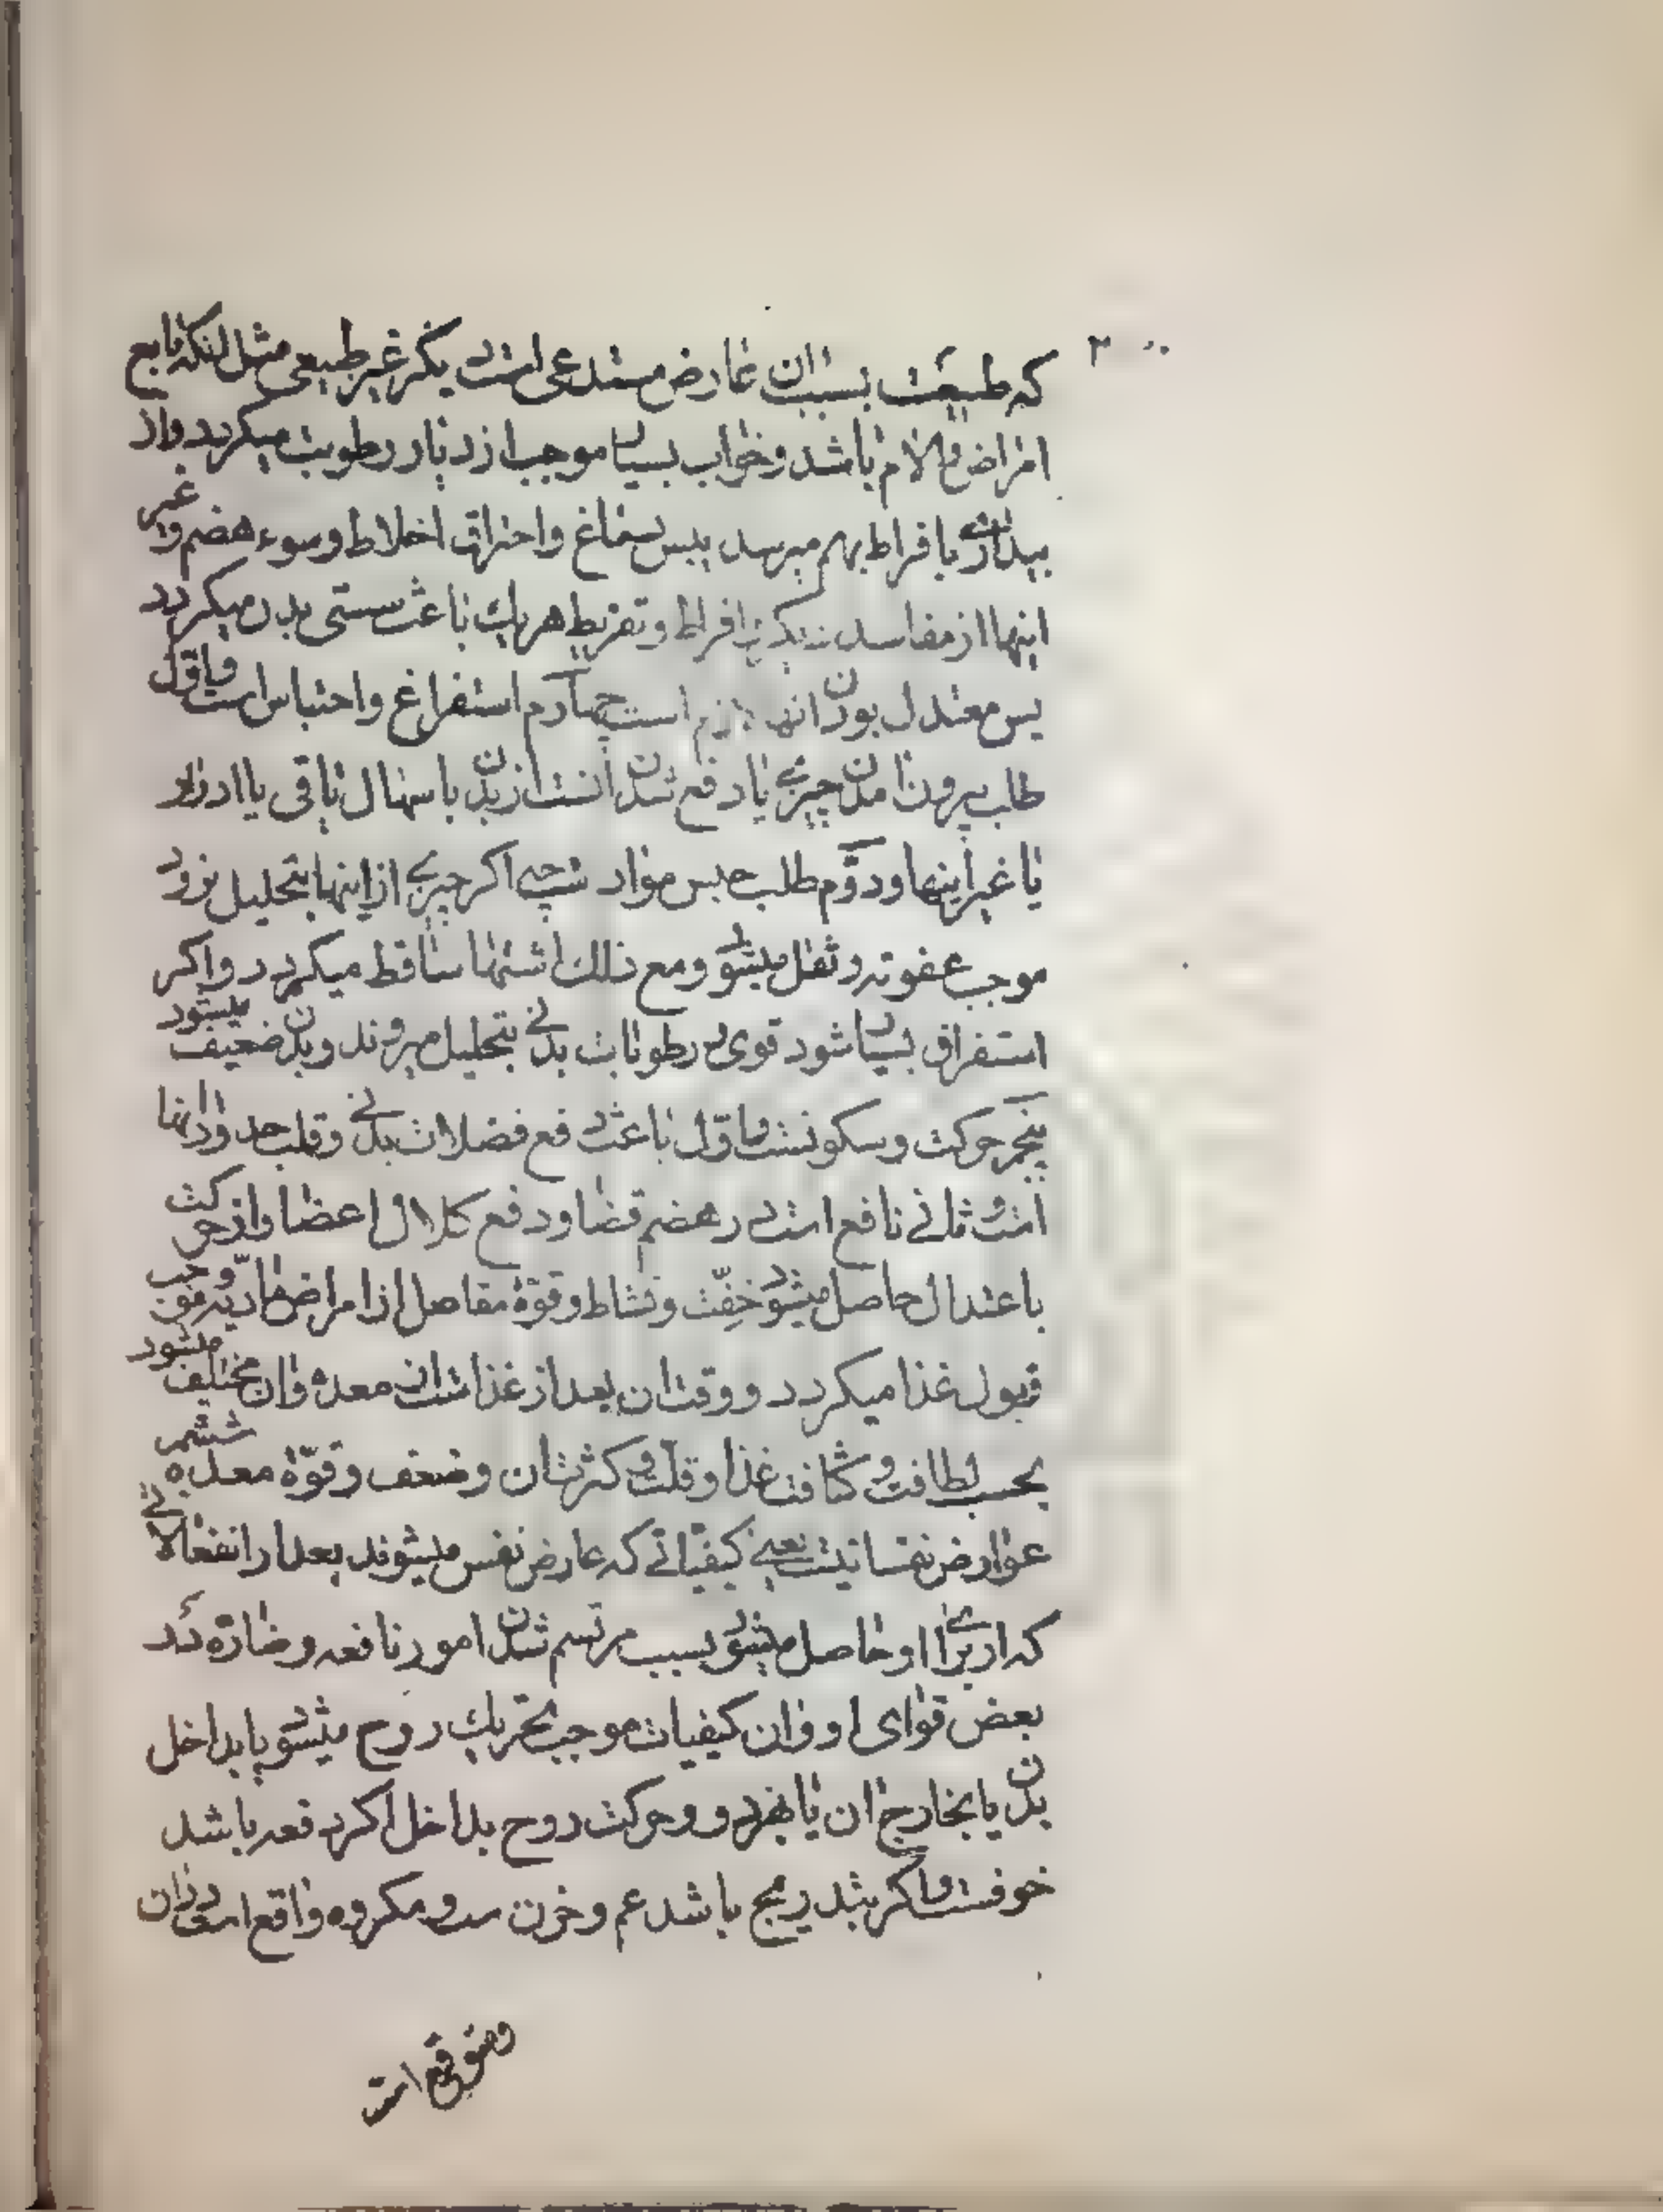 که طبیعت بسبب ان عارض مستدعی انست دیگر غیر طبیعی مثل انکه تابع
امراض و الام باشد و خواب بسیار موجب ازدیاد رطوبت میگردد و از
بیداری بافراط بهم میرسد یبس دماغ و احتراق اخلاط و سوء هضم و غیر
اینها از مفاسد افراط و تفریط هر یک باعث سستی بدن میگردد
پس معتدل بودن انها لازم است چهارم استفراغ و احتباس است و اول
طلب بیرون امدن چیزی یا دفع شدن انست از بدن باسهال یا قی یا ادرار
یا غیر اینها و دوم طلب حبس مواد چه اگر چیزی از اینها بتحلیل نرود
موجب عفونة و ثقل میشود و مع ذلک اشتها ساقط میگردد و اگر
استفراق بسیار شود قوی و رطوبات بدنی بتحلیل میروند و بدن ضعیف میشود
پنجم حرکت و سکونست و اول باعث دفع فضلات بدنی و قلب حد و ازانها
است و ثانی نافع است در هضم قضا و دفع کلال اعضا و از حرکت
باعتدال حاصل میشود خفّت و نشاط و قوّة مفاصل از امراض مادّیه و موجب
قبول غذا میگردد و وقت ان بعد از غذاست از معده و ان مختلف میشود
بحسب لطافت و کثافت غذا و قلّت و کثرت ان و ضعف و قوّة معده ششم
عوارض نفسانیست یعنی کیفیاتی که عارض نفس میشوند بعد از انفعالاتی
که از برای او حاصل میشود بسبب مرتسم شدن امور نافعه و ضارّه در
بعض قوای او و ان کیفیات موجب تحریک روح میشود یا بداخل
بدن یا بخارج ان یا بهر دو و حرکت روح بداخل اگر دفعه باشد
خوفست و اگر بتدریج باشد غم و حزن و مکروه واقع است در ان
و متوقع است